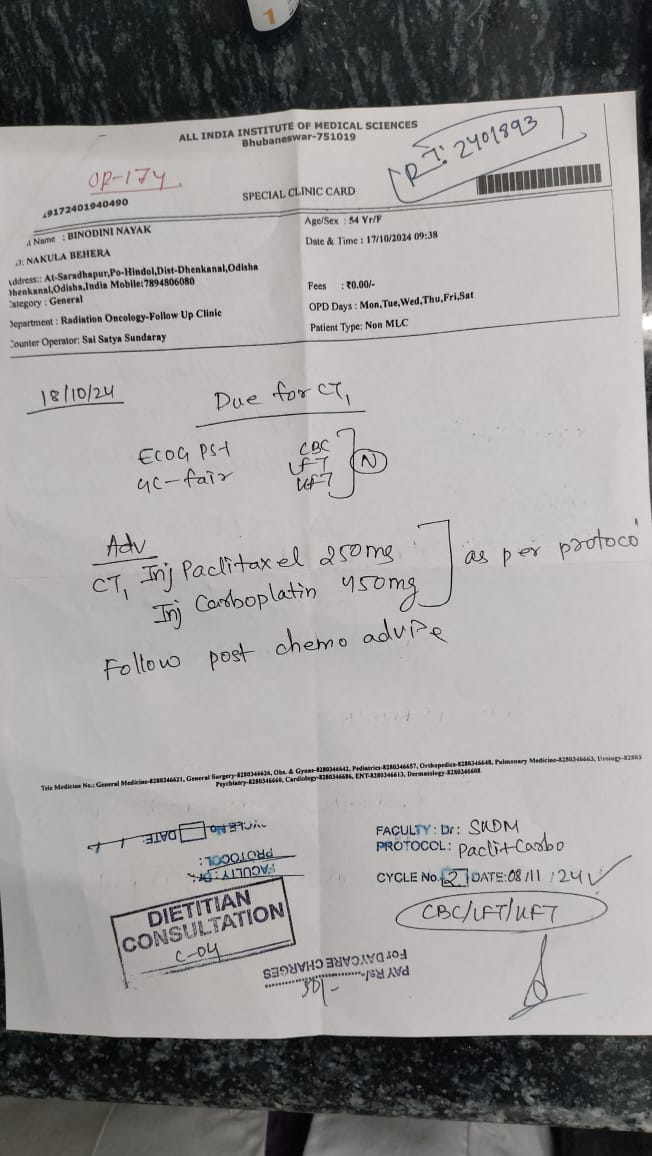 1
ALL INDIA INSTITUTE OF MEDICAL SCIENCES
Bhubaneswar-751019
OP-174
RT: 2401893
49172401940490
SPECIAL CLINIC CARD
Name : BINODINI NAYAK
Age/Sex : 54 Yr/F
D: NAKULA BEHERA
Date & Time : 17/10/2024 09:38
Address:: At-Saradhapur,Po-Hindol,Dist-Dhenkanal,Odisha
Dhenkanal,Odisha,India Mobile:7894806080
Fees : ₹0.00/-
Category : General
OPD Days : Mon,Tue,Wed,Thu,Fri,Sat
Department : Radiation Oncology-Follow Up Clinic
Patient Type: Non MLC
Counter Operator: Sai Satya Sundaray
18/10/24
Due for CT1
ECOG PS-1 CBC
GC-fair LFT N
KFT
Adv
CT1 Inj Paclitaxel 250mg as per protoco
Inj Carboplatin 450mg
Follow post chemo advise
Tele Medicine No.: General Medicine-8280346621, General Surgery-8280346626, Obs. & Gynae-8280346642, Pediatrics-8280346657, Orthopedics-8280346648, Pulmonary Medicine-8280346663, Urology-82803
Psychiatry-8280346660, Cardiology-8280346686, ENT-8280346613, Dermatology-8280346608
FACULTY: Dr: SKDM
PROTOCOL: Paclit+Carbo
CYCLE No. 2 DATE: 08/11/24
CBC/LFT/KFT
CYCLE No DATE:
PROTOCOL:
FACULTY: Dr:
DIETITIAN
CONSULTATION
C-04
PAY Rs/-
For DAYCARE CHARGES